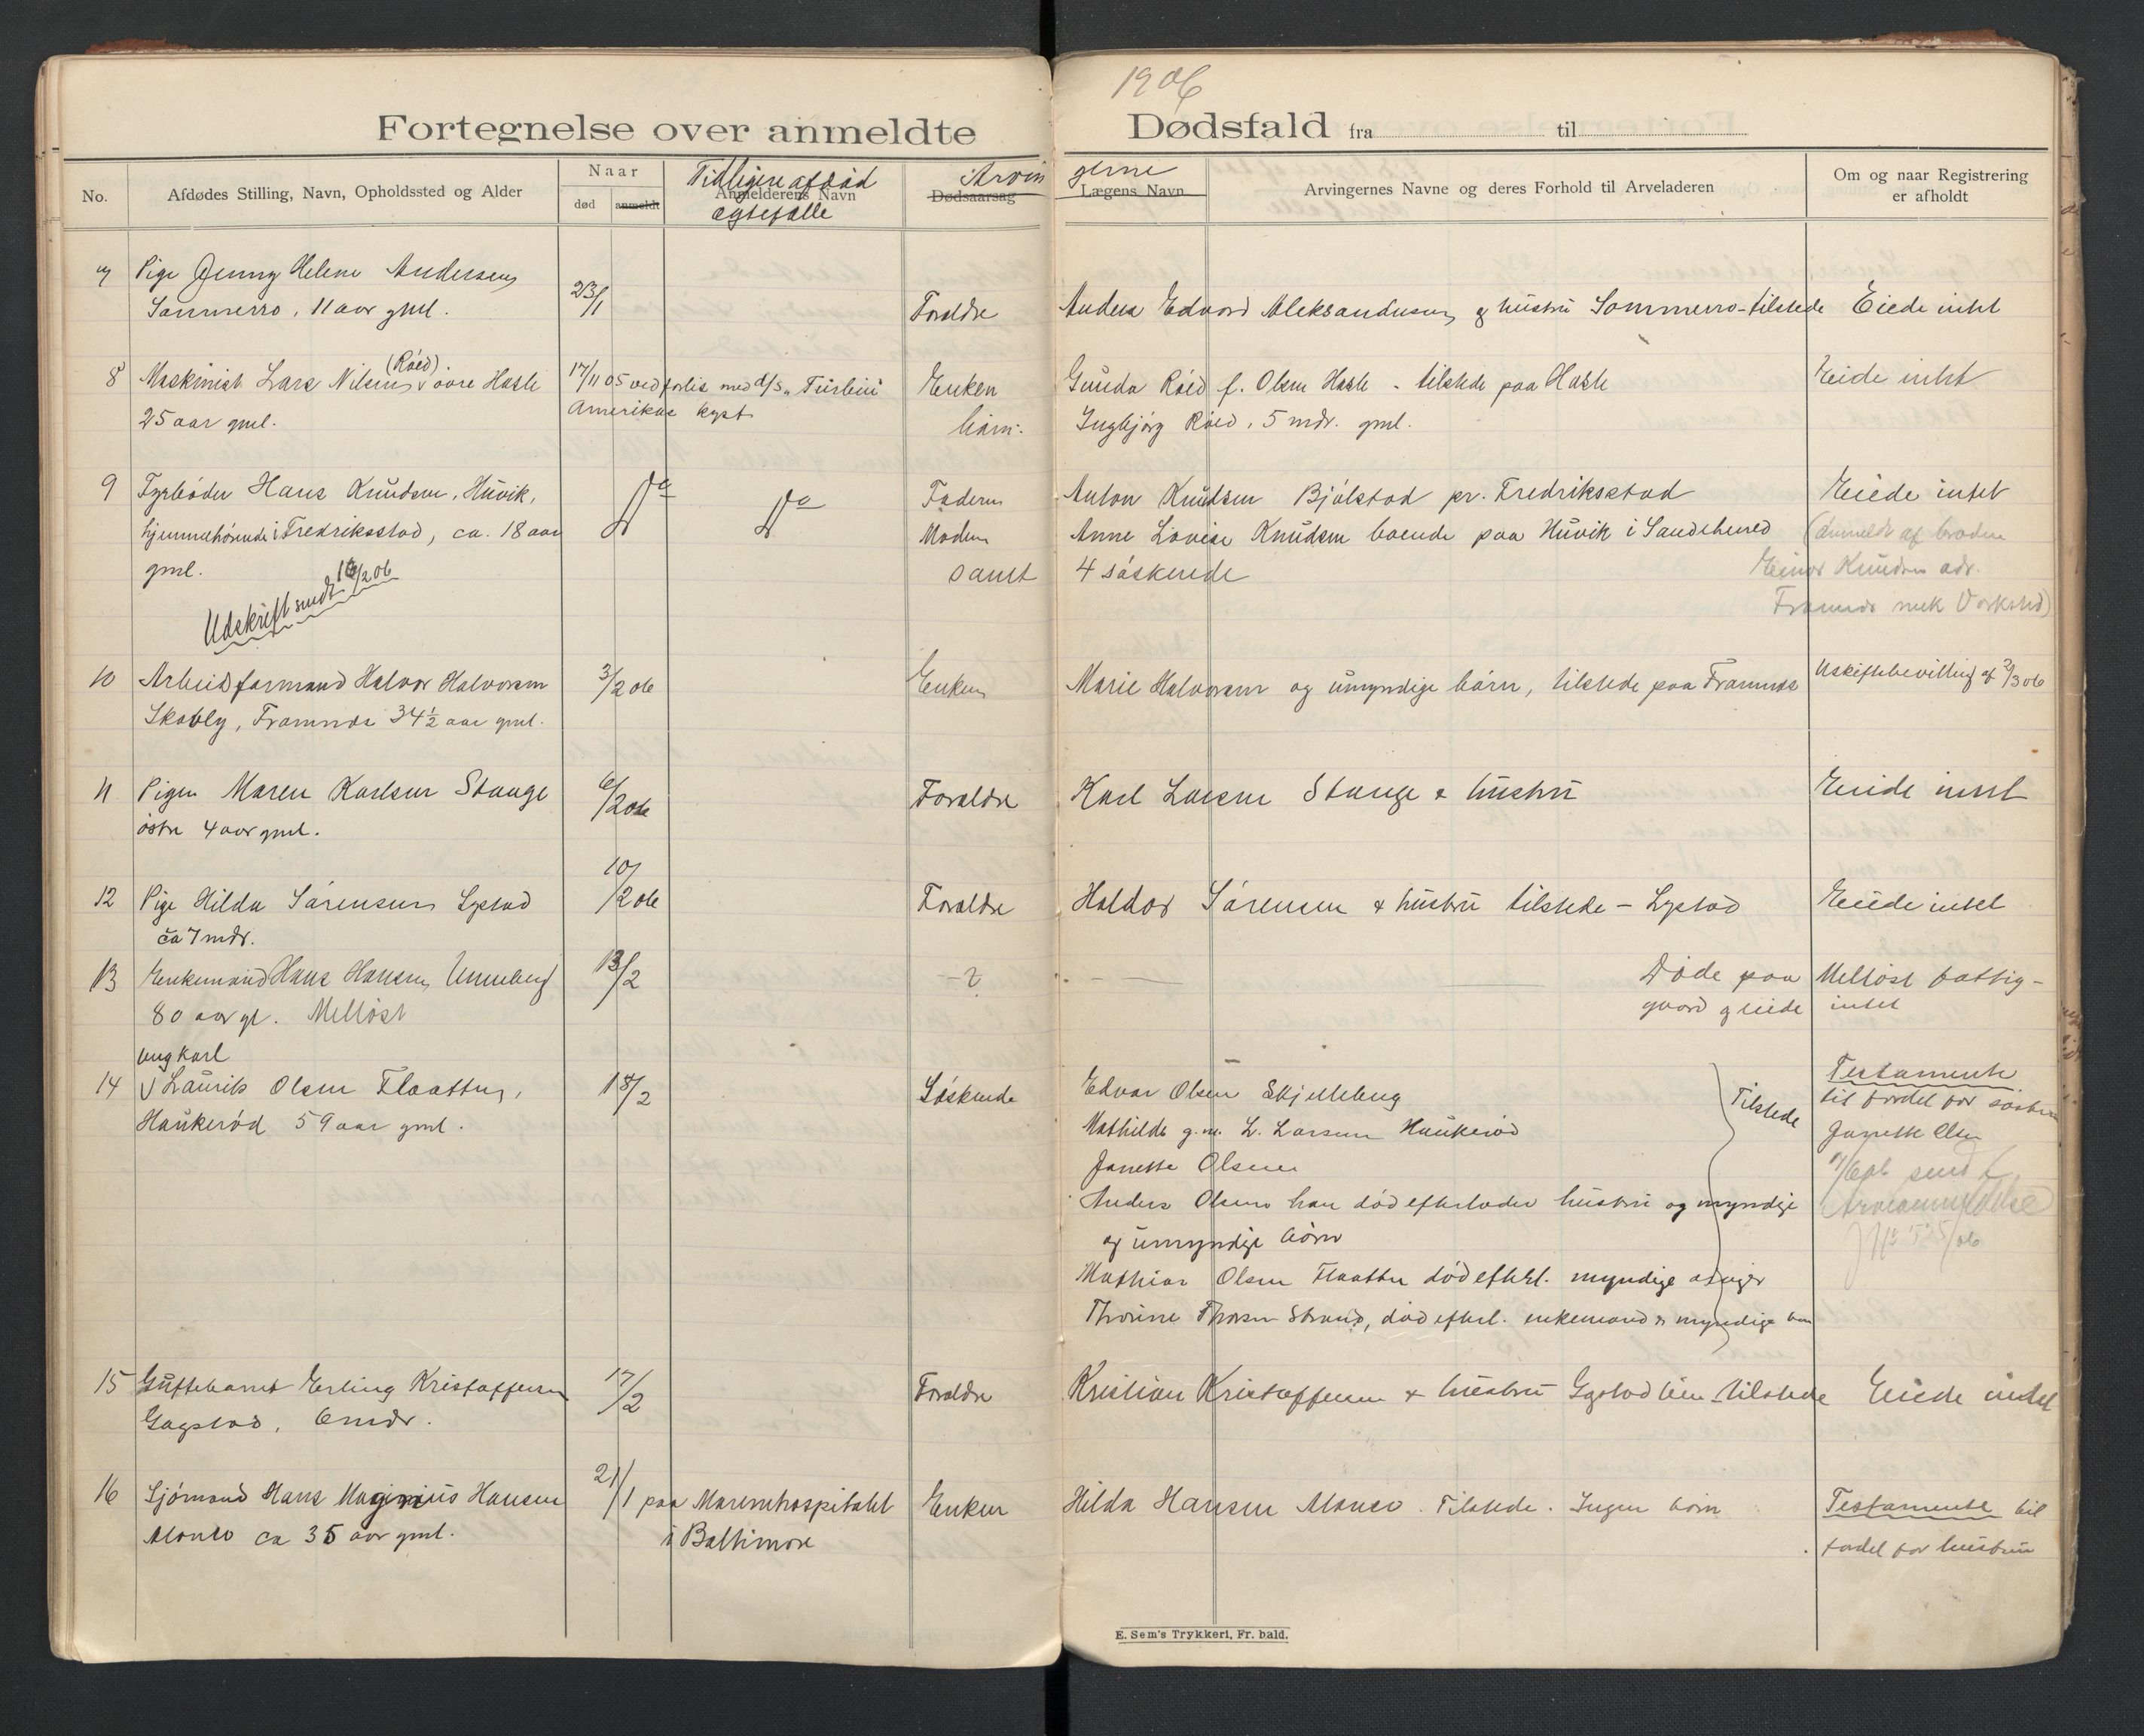 1906
Fortegnelse over anmeldte Dødsfald fra til
No.
Afdødes Stilling, Navn, Opholdssted og Alder
Naar
død anmeldt
Tidligere afdød
Anmelderens Navn
ægtefælle
Arvingerne
Dødsaarsag
Lægens Navn
Arvingernes Navne og deres Forhold til Arveladeren
Om og naar Registrering
er afholdt
7 Pige Jenny Helene Andersen
Sommerro, 11 aar gml.
23/1
Forældre
Anders Edvard Aleksandersen og hustru Sommerro - tilstede
Eiede intet
8 Maskinist Lars Nilsen (Røed) øvre Hasle
25 aar gml.
17/11 05 ved forlis med d/s "Turbin"
Amerikas kyst
Enken
barn.
Gunda Røed f. Olsen Hasle - tilstede paa Hasle
Ingbjørg Røed, 5 mdr. gml.
Eiede intet
9 Fyrbøder Hans Knudsen, Huvik,
hjemmehørende i Fredriksstad, ca. 18 aar
gml.
Udskrift sendt 16/2 06
Do Do
Faderen
Moderen
samt
Anton Knudsen Bjølstad pr. Fredriksstad
Anne Lovise Knudsen boende paa Huvik i Sandeherred
4 søskende
Eiede intet
(Anmeldt af broder
Einar Knudsen adr.
Framnæs mek Værksted)
10 Arbeidsformand Halvor Halvorsen
Skobly, Framnæs 34½ aar gml.
3/2 06
Enken
Marie Halvorsen og umyndige børn, tilstede paa Framnæs
Uskiftebevilling af 2/3 06
11 Pigen Maren Karlsen Stange
østre 4 aar gml.
6/2 06
Forældre
Karl Larsen Stange & hustru
Eiede intet
12 Pige Hilda Sørensen Lystad
ca 7 mdr.
10/2 06
Forældre
Haldor Sørensen & hustru tilstede - Lystad
Eiede intet
13 Enkemand Hans Hansen Unneberg
80 aar gl. Melløst
13/2
- ?
Døde paa Melløst fattig-
gaard og eiede intet
ungkarl
14 Laurits Olsen Flaatten,
Haukerød 59 aar gml.
18/2
Søskende
Edvar Olsen Skjelleberg
Mathilde g.m. L. Larsen Haukerød
Janette Olsen
Anders Olsen han død efterlader hustru og myndige
og umyndige børn
Mathias Olsen Flaatten død efterl. myndige
Thorine Thorsen Strand, død efterl. enkemand & myndige
Tilstede
Testamente
til fordel for søster
Janette Olsen
sendt
15 Guttebarnet Erling Kristoffersen
Gogstad, 6 mdr.
17/2
Forældre
Kristian Kristoffersen & hustru Gogstad lien - tilstede
Eiede intet
16 Sjømand Hans Magnius Hansen
Alonso ca 35 aar gml.
21/1 paa Marinehospitalet
i Baltimore
Enken
Hilda Hansen Alonso. Tilstede. Ingen børn
Testamente til
fordel for hustru
E. Sem's Trykkeri, Fr. hald.